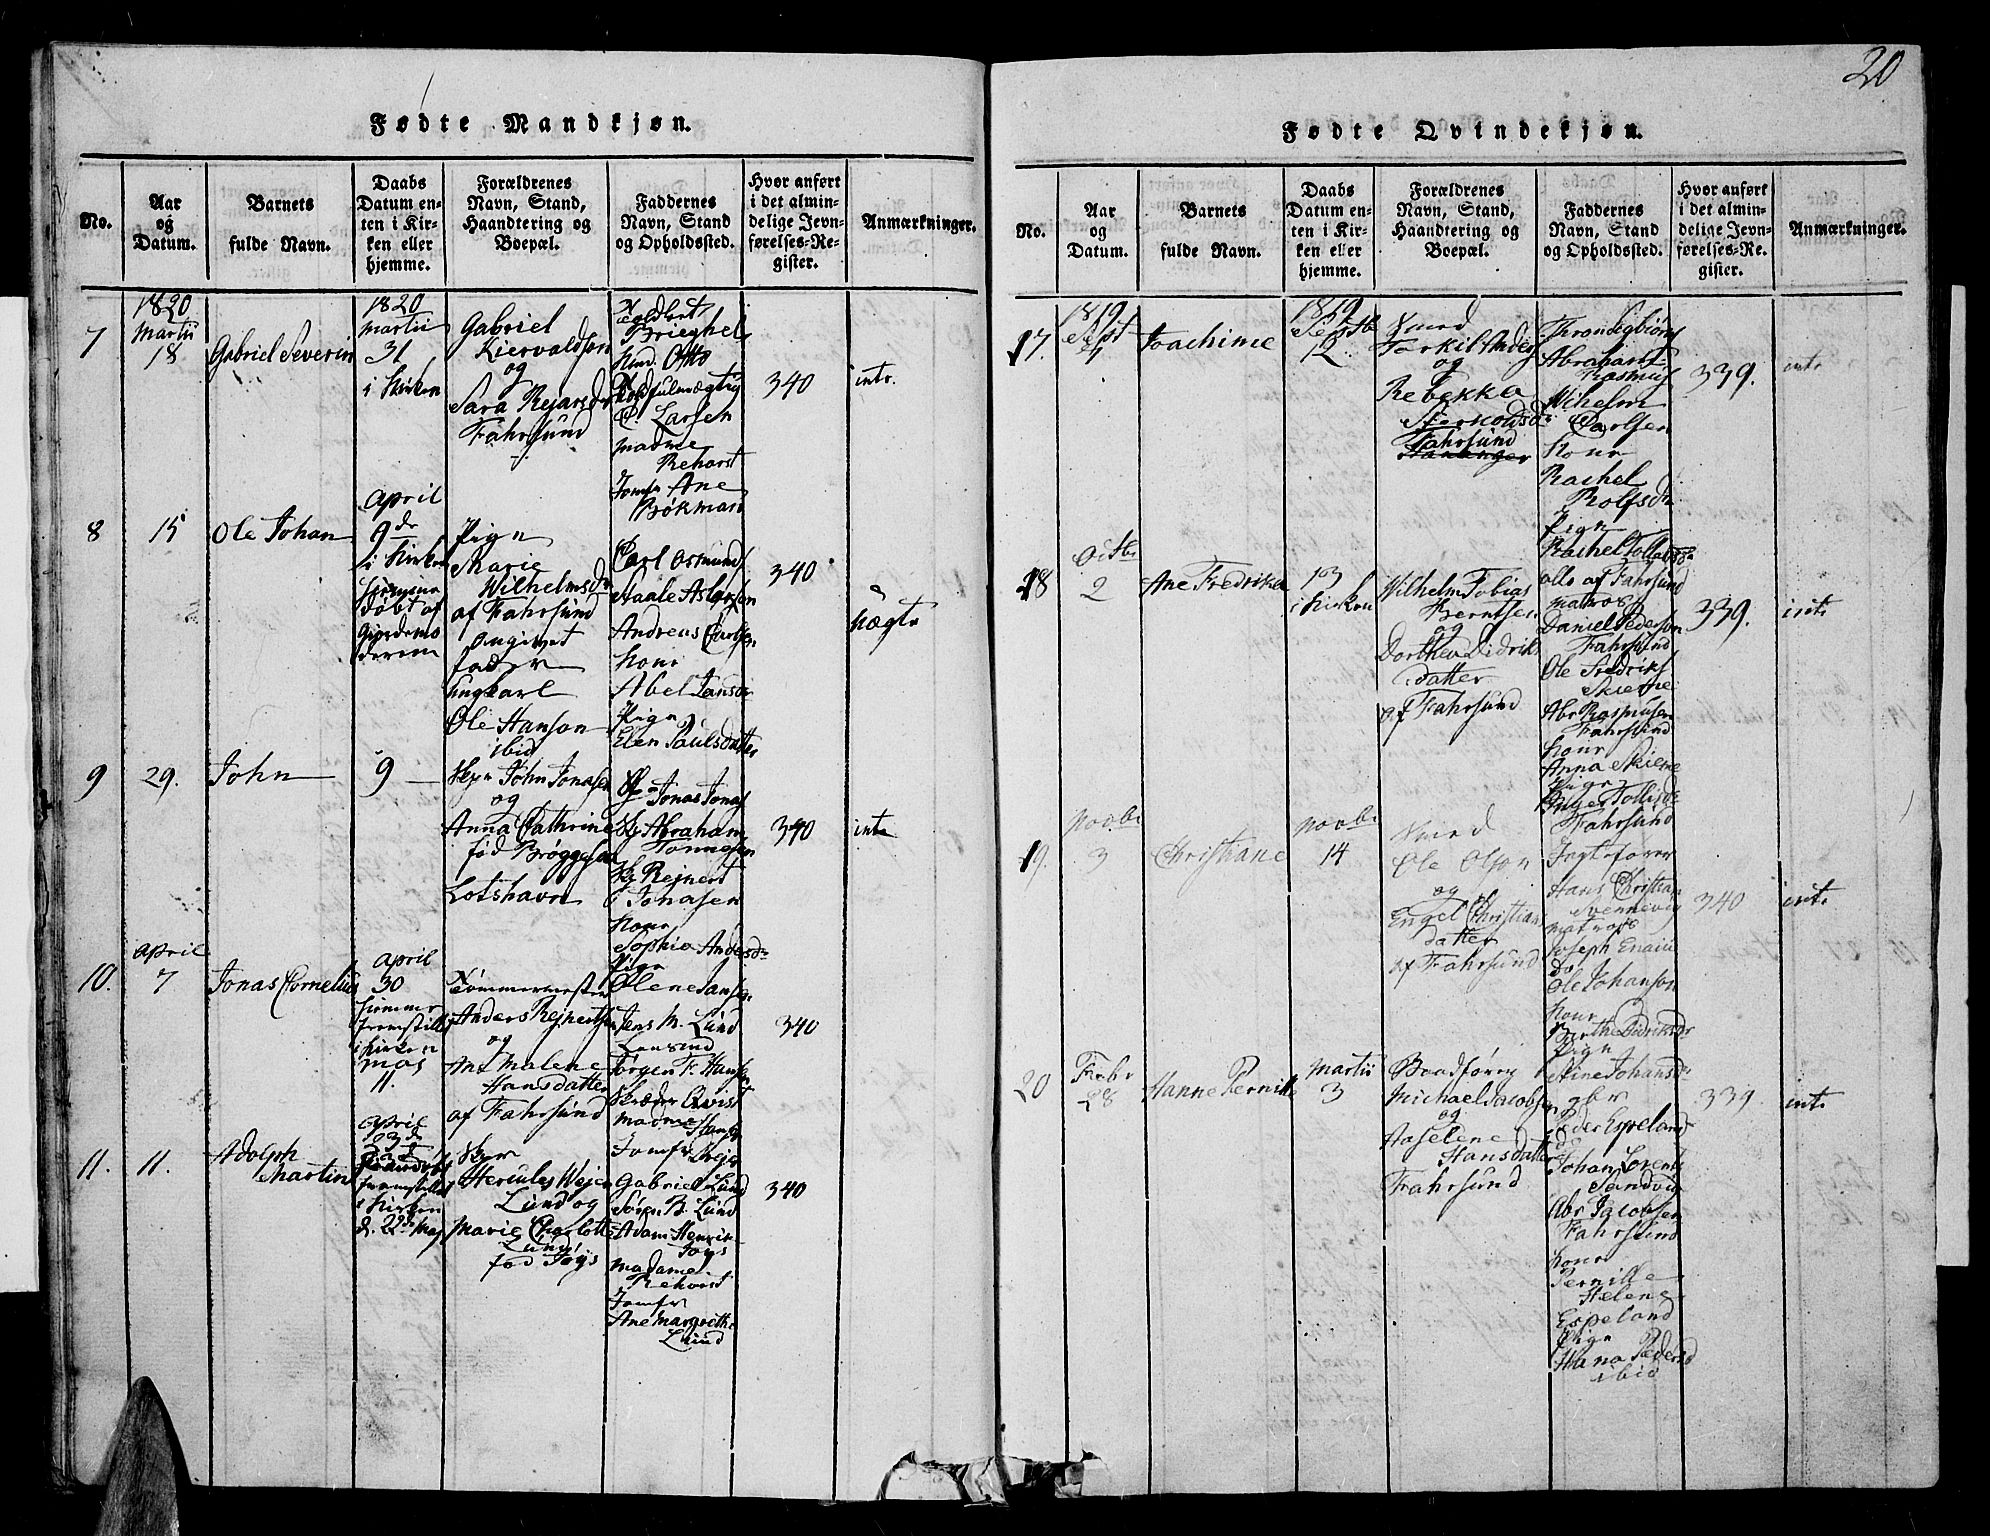 20
Fødte Mandkjøn.
No.
Aar
og
Datum.
Barnets
fulde Navn.
Daabs
Datum en-
ten i Kir-
ken eller
hjemme.
Forældrenes
Navn, Stand,
Haandtering og
Boepæl.
Faddernes
Navn, Stand
og Opholdssted.
Hvor anført
i det almin-
delige Jevn-
førelses-Re-
gister.
Anmærkninger.
7
1820
Martii
18
Gabriel Severin
1820
Martii
31
i Kirken
Gabriel
Kiervaldsen
og
Sara
Fahrsund
Brieghel
Otto
C. Larsen
Madme
Rehorst
Jomfr Ane
Brøkman
340
intr
8
15
Ole Johan
April
9de
i Kirken
døbt af
Pign
Marie
Wilhelmsdr
af Fahrsund
angivet
fader
Ungkarl
Ole Hanson
ibid
Carl Osmunds
Andreas Carlsen
Konr
Abel
Pign
Elen Paulsdatter
340
Uægte
9
29.
John
9
Skpr John Jonasen
og
Anna Cathrine
fød
Lotshavn
Jonas Jonas
Abraham
Tønnesen
Rejnert
Jonasen
Konr
Sophia Andersdr
Pign
Olene Jansdr
340
intr
10.
April
7
Jonas Cornelius
April
30
hiemme
fremstillet
i Kirken
Maj
11.
Tømmermester
Anders Rejnertsen
og
Ane Malene
Hansdatter
af Fahrsund
Jens M. Lund
Jørgen F. Hansen
Skræder Qvist
Madme Hansen
Jomfr
340
11.
11.
Adolph
Martin
April
23de
fremstillet
i Kirken
d. 22de Maj
Hercules Wejer
Lund og
Marie Charlotte
Lund
fød Joys
Gabriel Lund
Søren B. Lund
Adam Henrik
Joys
Madame
Rehorst
Jomfr
Ane Margrethe
Lund
340
Fødte Qvindekjøn.
No.
Aar
og
Datum.
Barnets
fulde Navn.
Daabs
Datum en-
ten i Kir-
ken eller
hjemme.
Forældrenes
Navn, Stand,
Haandtering og
Boepæl.
Faddernes
Navn, Stand
og Opholdssted.
Hvor anført
i det almin-
delige Jevn-
førelses-Re-
gister.
Anmærkninger.
17.
1819
Sept
Joachime
1819
Septbr
12
Torkil Anders
og
Rebekka
Fahrsund
Abrahams
Rasmus
Wilhelm
Carlsen
Konr
Rachel
Rolfsdr
Pign
Rachel
alle af Fahrsund
339.
intr
18
Octbr
2
Ane Fredrikke
103
i Kirken
Wilhelm Tobias
Berntsen
og
Dorthea Didriks
datter
af Fahrsund
Matros
Daniel Pedersen
Fahrsund
Ole Fredriks
Skierne
Abr Rasmusen
Fahrsund
Konr
Anna Skierne
Pign
Inger
Fahrsund
339.
intr
19.
Novbr
3
Christiane
Novbr
14
Ole Olson
og
Engel Christian
datter
af Fahrsund
Jagtefører
Hans Christian
Svennevig
Matros
Joseph
do
Ole Johanson
Konr
Berthe Didriksdr
Pign
Stine Johansdr
340
intr
20
Febr
28
Hanne Pernille
Martii
3
Michael Jacobsen
og
Aaselene
Hansdatter
Fahrsund
Peder Espeland
do
Johan Lorents
Sandvig
Abr Jacobsen
Fahrsund
Konr
Pernille
Helene
Espeland
Pign
Hana Pedersd
ibid
339
intr